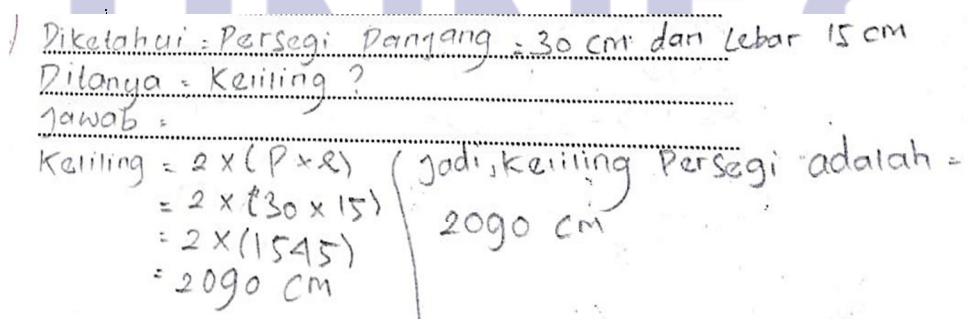 ) Diketahui : Persegi Panjang = 30 cm dan Lebar 15 cm
Ditanya = Keliling ?
Jawab :
Keliling = 2 x ( P x l )
= 2 x (30 x 15)
= 2 x (1545)
= 2090 cm
Jadi, keliling Persegi adalah =
2090 cm